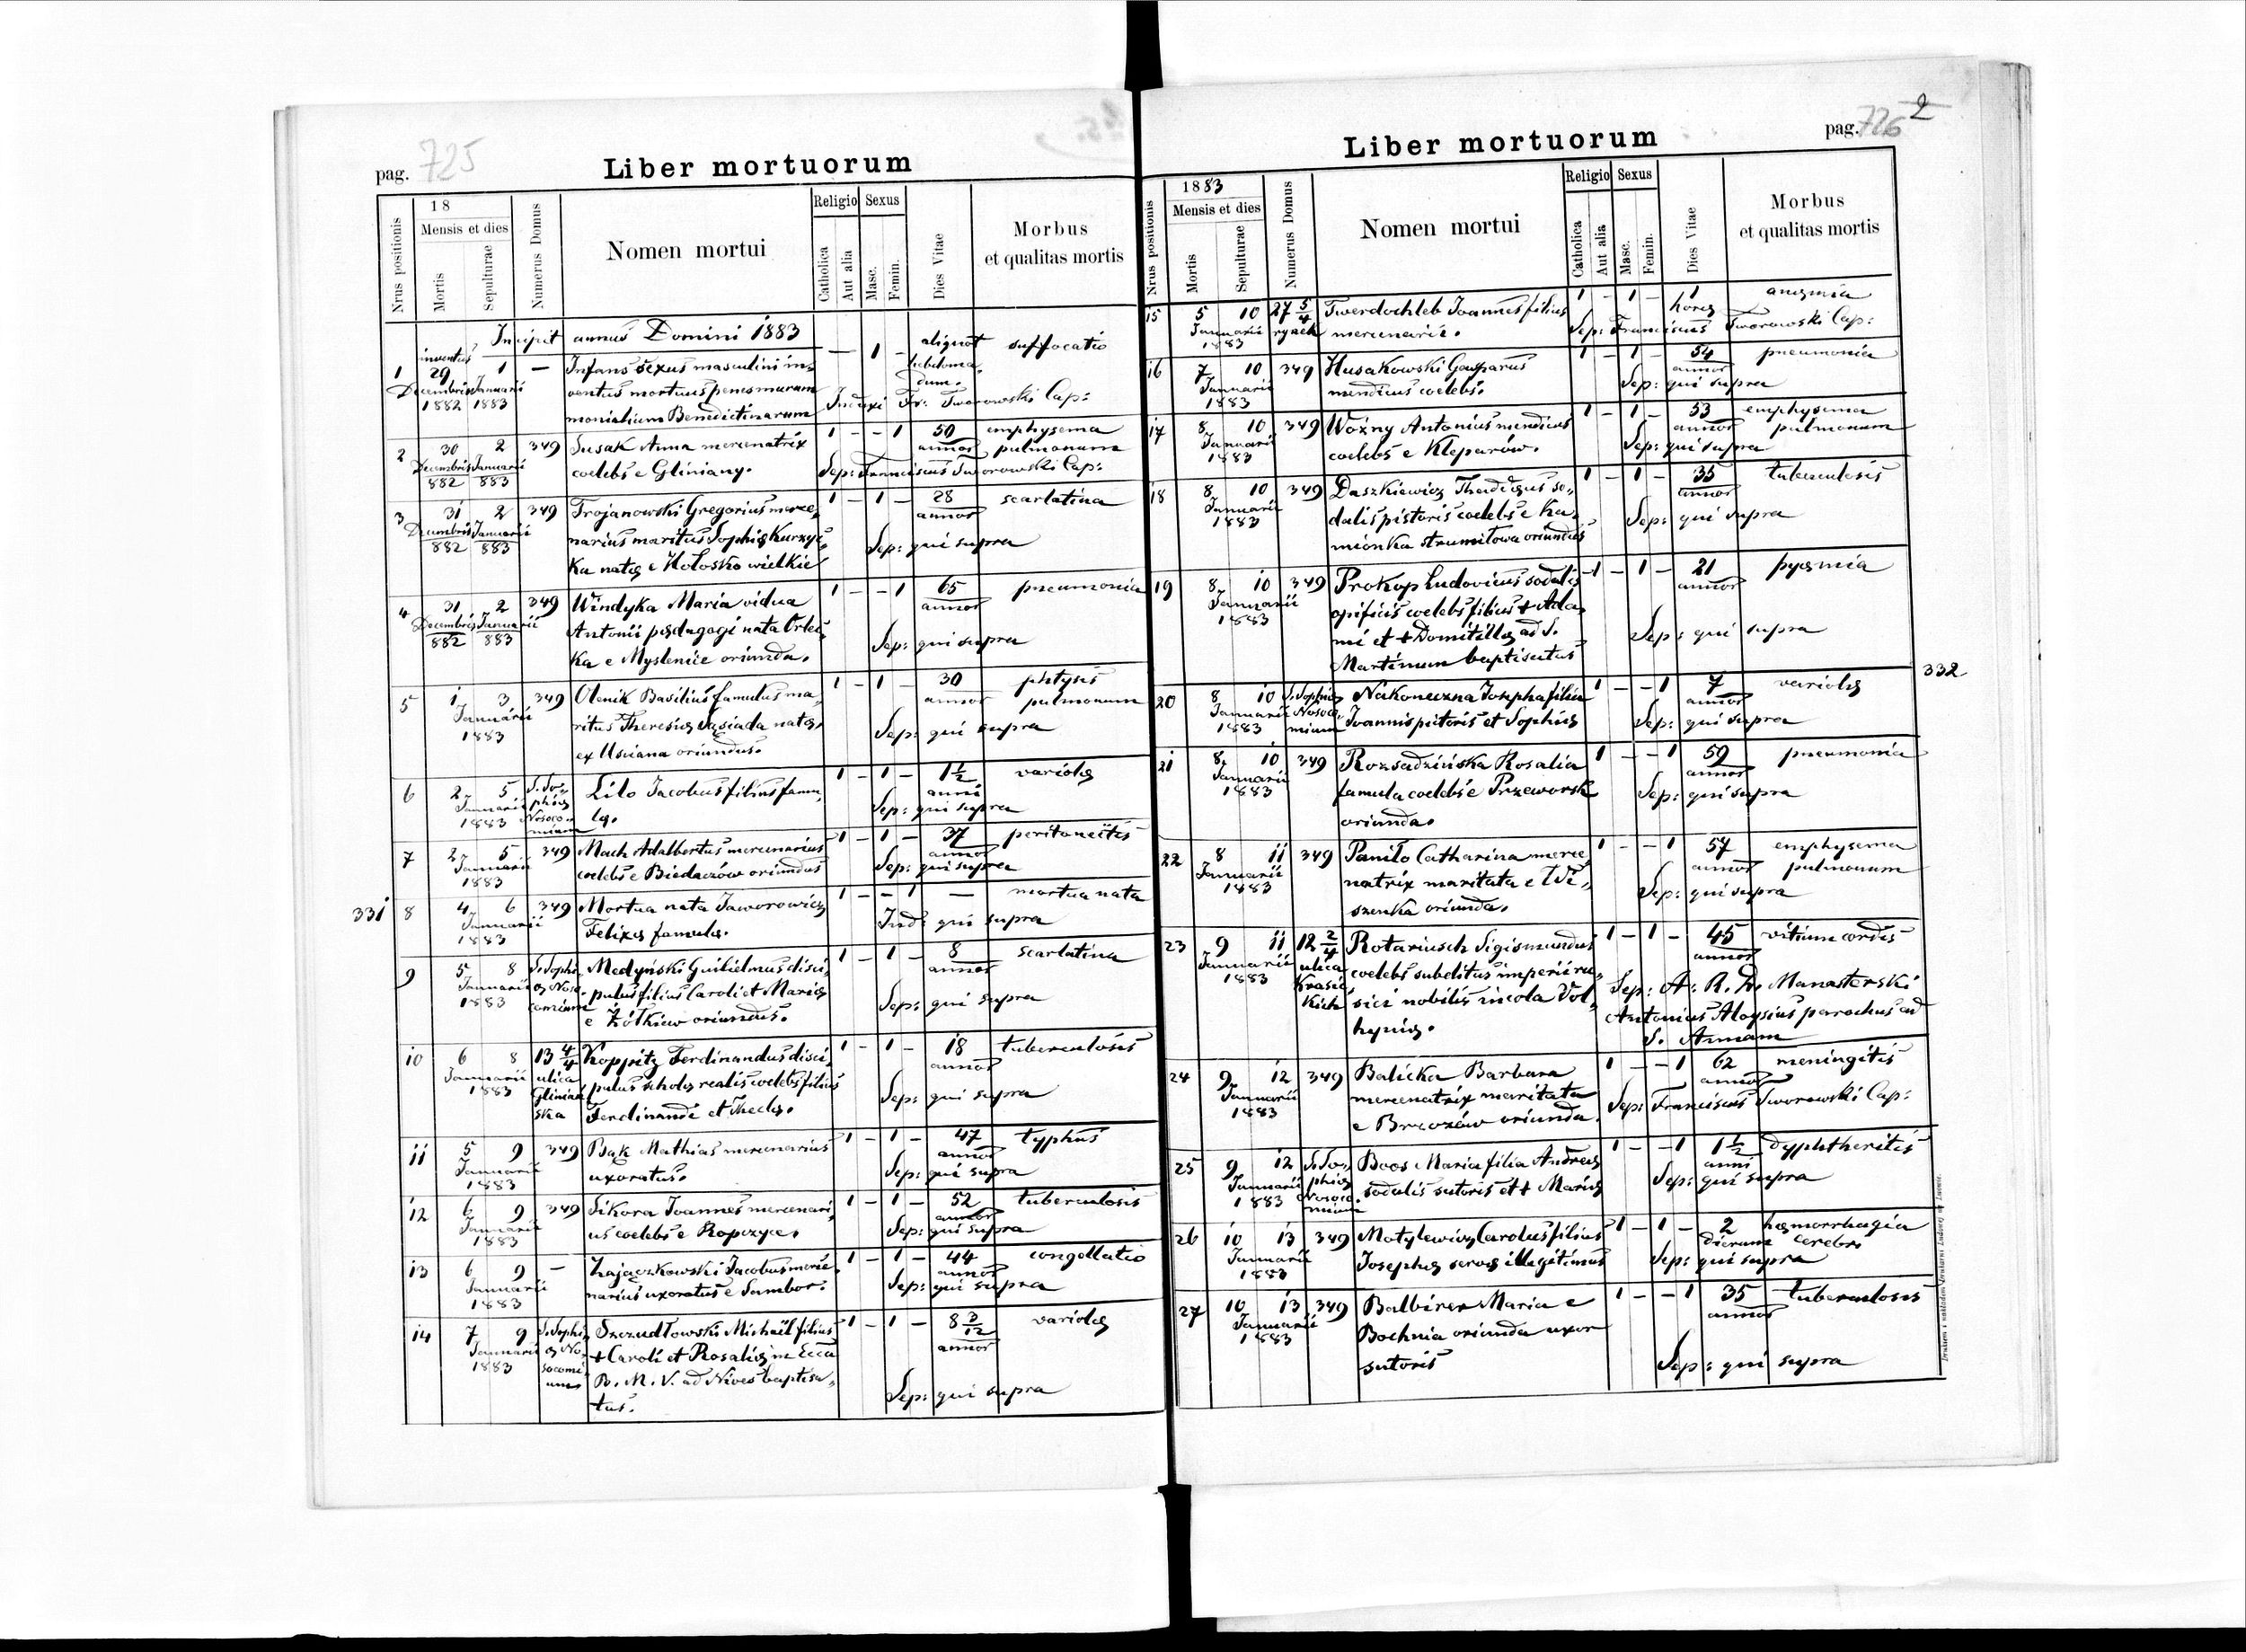 pag. 725
Liber mortuorum
Nrus positionis
18
Mensis et dies
Mortis
Sepulturae
Numerus Domus
Nomen mortui
Religio
Catholica
Aut alia
Sexus
Masc.
Femin.
Dies Vitae
Morbus
et qualitas mortis
Incipit annus Domini 1883
1 inventus 29 Decembris 1882 1 Januarii 1883 —
Infans sexus masculini in-
ventus mortuus penes murum
monialium Benedictinarum
— 1 — aliquot hebdoma- dum. suffocatio
Induxi Fr: Tworowski Cap:
2 30 Decembris 882 2 Januarii 883 349
Susak Anna mercenatrix
coelebs e Gliniany.
1 — — 1 50 annor emphysema pulmonum
Sep: Franciscus Tworowski Cap:
3 31 Decembris 882 2 Januarii 883 349
Trojanowski Gregorius merce,
narius maritus Sophiæ Kurzyi,
ka natæ e Hołosko wielkie
1 — 1 — 28 annor scarlatina
Sep: qui supra
4 31 Decembris 882 2 Januarii 883 349
Windyka Maria vidua
Antonii pædagogi nata Orlec,
ka e Myslenice oriunda.
1 — — 1 65 annor pneumonia
Sep: qui supra
5 1 3 Januarii 1883 349
Olenik Basilius famulus ma,
ritus Theresiæ Sąsiada natæ,
ex Usciana oriundus.
1 — 1 — 30 annor phtysis pulmonum
Sep: qui supra
6 2 5 Januarii 1883 S. So, phiæ Nosoco- mium
Lilo Jacobus filius famu,
læ.
1 — 1 — 1 1/2 anni variolæ
Sep: qui supra
7 2 5 Januarii 1883 349
Mach Adalbertus mercenarius
coelebs e Biedaczów oriundus
1 — 1 — 37 annor peritoneitis
Sep: qui supra
331
8 4 6 Januarii 1883 349
Mortua nata Jaworowicz
Felixæ famulæ.
1 — — 1 — mortua nata
Ind: qui supra
9 5 8 Januarii 1883 S. Sophi, æ Noso, comium
Medyński Guilielmus disci,
pulus filius Caroli et Mariæ
e Żółkiew oriundus.
1 — 1 — 8 annor scarlatina
Sep: qui supra
10 6 8 Januarii 1883 13 4/4 ulica Glinian ska
Koppitz Ferdinandus disci,
pulus scholæ realis coelebs filius
Ferdinandi et Theclæ.
1 — 1 — 18 annor tuberculosis
Sep: qui supra
11 5 9 Januarii 1883 349
Bąk Mathias mercenarius
uxoratus.
1 — 1 — 47 annor typhus
Sep: qui supra
12 6 9 Januarii 1883 349
Sikora Joannes mercenari,
us coelebs e Ropczyce.
1 — 1 — 52 annor tuberculosis
Sep: qui supra
13 6 9 Januarii 1883 —
Zajączkowski Jacobus merce,
narius uxoratus e Sambor.
1 — 1 — 44 annor congellatio
Sep: qui supra
14 7 9 Januarii 1883 S. Sophi, æ No, socomi, um
Szczudłowski Michaël filius
+ Caroli et Rosaliæ in Ecca
B. M. V. ad Nives baptisa,
tus.
1 — 1 — 8 3/12 annor variolæ
Sep: qui supra
pag. 726 2
Liber mortuorum
Nrus positionis
1883
Mensis et dies
Mortis
Sepulturae
Numerus Domus
Nomen mortui
Religio
Catholica
Aut alia
Sexus
Masc.
Femin.
Dies Vitae
Morbus
et qualitas mortis
15 5 10 Januarii 1883 27 5/4 rynek
Twerdochleb Joannes filius
mercenarii.
1 — 1 — 1 horæ anæmia
Sep: Franciscus Tworowski Cap:
16 7 10 Januarii 1883 349
Husakowski Gasparus
mendicus coelebs.
1 — 1 — 54 annor pneumonia
Sep: qui supra
17 8 10 Januarii 1883 349
Woźny Antonius mendicus
coelebs e Kleparów.
1 — 1 — 53 annor emphysema pulmonum
Sep: qui supra
18 8 10 Januarii 1883 349
Daszkiewicz Thaddæus so,
dalis pistoris coelebs e Ka,
mionka strumiłowa oriundus
1 — 1 — 35 annor tuberculosis
Sep: qui supra
19 8 10 Januarii 1883 349
Prokop Ludovicus sodalis
opificis coelebs filius + Ada,
mi et + Domitillæ ad S.
Martinum baptisatus
1 — 1 — 21 annor pyæmia
Sep: qui supra
332
20 8 10 Januarii 1883 S. Sophiæ Nosoco, mium
Nakoneczna Josepha filia
Joannis pictoris et Sophiæ
1 — — 1 7 annor variolæ
Sep: qui supra
21 8 10 Januarii 1883 349
Rozsadzińska Rosalia
famula coelebs e Przeworsk
oriunda.
1 — — 1 59 annor pneumonia
Sep: qui supra
22 8 11 Januarii 1883 349
Panilo Catharina merce,
natrix maritata e Wi,
szenka oriunda.
1 — — 1 57 annor emphysema pulmonum
Sep: qui supra
23 9 11 Januarii 1883 12 2/4 ulica Krasic kich
Rotariusch Sigismundus
coelebs subditus imperii ru,
sici nobilis incola Vol,
hyniæ.
1 — 1 — 45 annor vitium cordis
Sep: A: R. D. Manasterski
Antonius Aloysius parochus ad
S. Annam
24 9 12 Januarii 1883 349
Balicka Barbara
mercenatrix maritata
e Brzozów oriunda
1 — — 1 62 annor meningitis
Sep: Franciscus Tworowski Cap:
25 9 12 Januarii 1883 S. So, phiæ Nosoco, mium
Boos Maria filia Andreæ
sodalis sutoris et + Mariæ
1 — — 1 1 1/2 anni dyphtheritis
Sep: qui supra
26 10 13 Januarii 1883 349
Motylewicz Carolus filius
Josephæ servæ illegitimus
1 — 1 — 2 dierum hæmorrhagia cerebri
Sep: qui supra
27 10 13 Januarii 1883 349
Balbirer Maria e
Bochnia oriunda uxor
sutoris
1 — — 1 35 annor tuberculosis
Sep: qui supra